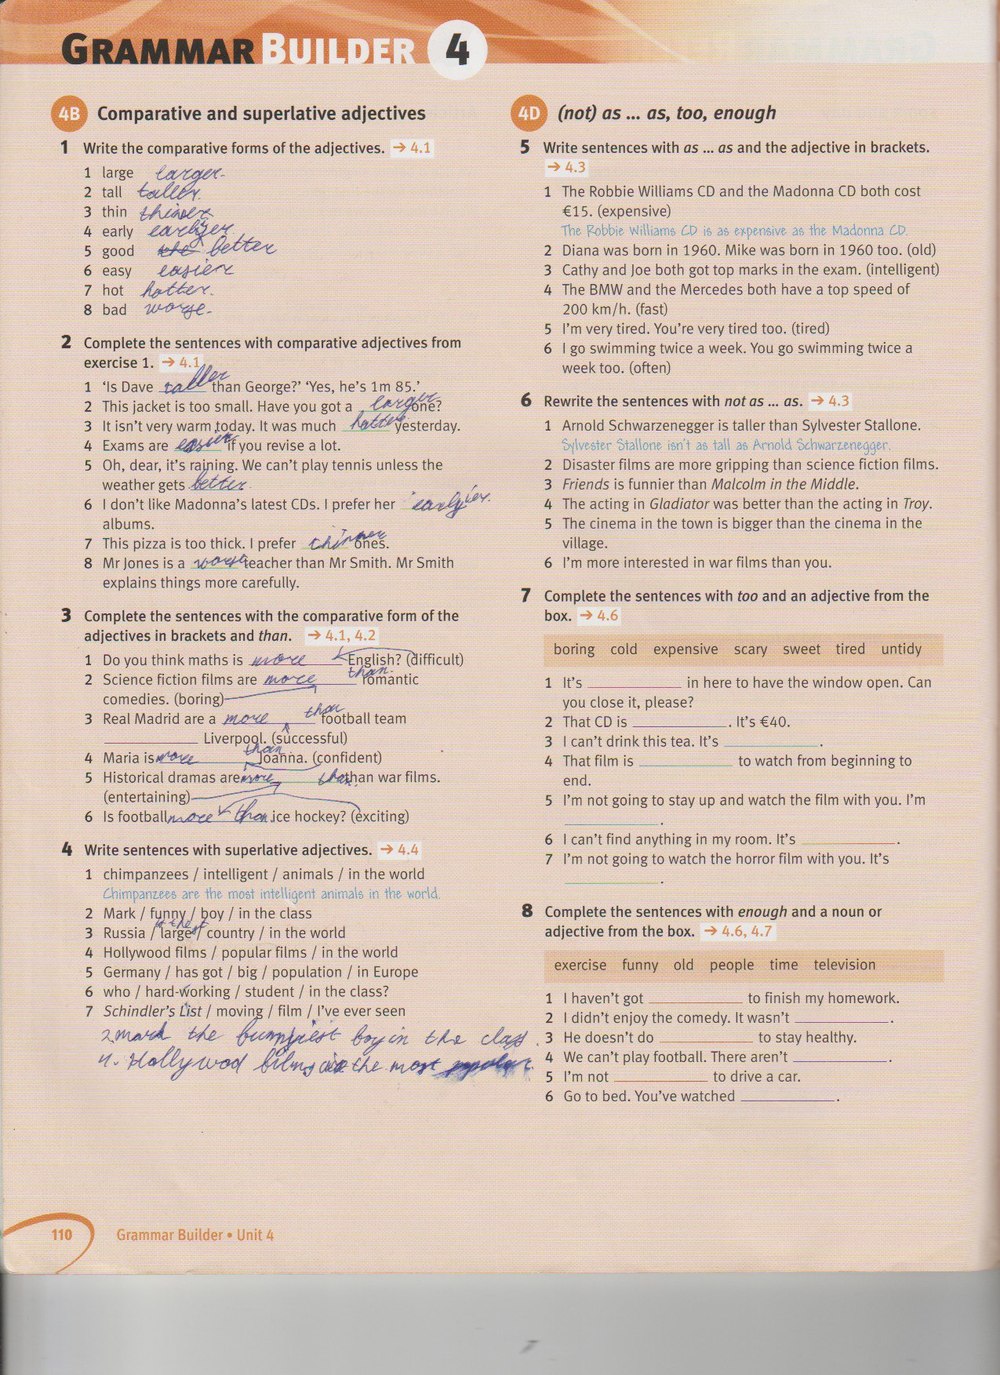 GRAMMAR BUILDER 4
4B Comparative and superlative adjectives
1 Write the comparative forms of the adjectives. → 4.1
1 large larger
2 tall taller
3 thin thinner
4 early earlier
5 good the better
6 easy easier
7 hot hotter.
8 bad worse.
2 Complete the sentences with comparative adjectives from
exercise 1. → 4.1
1 ‘Is Dave taller than George?’ ‘Yes, he’s 1m 85.’
2 This jacket is too small. Have you got a larger one?
3 It isn’t very warm today. It was much hotter yesterday.
4 Exams are easier if you revise a lot.
5 Oh, dear, it’s raining. We can’t play tennis unless the
weather gets better.
6 I don’t like Madonna’s latest CDs. I prefer her earlyier
albums.
7 This pizza is too thick. I prefer thinner ones.
8 Mr Jones is a worse teacher than Mr Smith. Mr Smith
explains things more carefully.
3 Complete the sentences with the comparative form of the
adjectives in brackets and than. → 4.1, 4.2
1 Do you think maths is more English? (difficult)
2 Science fiction films are more than romantic
comedies. (boring)
3 Real Madrid are a more than football team
Liverpool. (successful)
4 Maria is more than Joanna. (confident)
5 Historical dramas are more than than war films.
(entertaining)
6 Is football more than ice hockey? (exciting)
4 Write sentences with superlative adjectives. → 4.4
1 chimpanzees / intelligent / animals / in the world
Chimpanzees are the most intelligent animals in the world.
2 Mark / funny / boy / in the class
3 Russia / large / country / in the world
4 Hollywood films / popular films / in the world
5 Germany / has got / big / population / in Europe
6 who / hard-working / student / in the class?
7 Schindler’s List / moving / film / I’ve ever seen
2 mark the funnyiest boy in the class.
4. Hollywod films are the most
110 Grammar Builder • Unit 4
4D (not) as ... as, too, enough
5 Write sentences with as ... as and the adjective in brackets.
→ 4.3
1 The Robbie Williams CD and the Madonna CD both cost
€15. (expensive)
The Robbie Williams CD is as expensive as the Madonna CD.
2 Diana was born in 1960. Mike was born in 1960 too. (old)
3 Cathy and Joe both got top marks in the exam. (intelligent)
4 The BMW and the Mercedes both have a top speed of
200 km/h. (fast)
5 I’m very tired. You’re very tired too. (tired)
6 I go swimming twice a week. You go swimming twice a
week too. (often)
6 Rewrite the sentences with not as ... as. → 4.3
1 Arnold Schwarzenegger is taller than Sylvester Stallone.
Sylvester Stallone isn’t as tall as Arnold Schwarzenegger.
2 Disaster films are more gripping than science fiction films.
3 Friends is funnier than Malcolm in the Middle.
4 The acting in Gladiator was better than the acting in Troy.
5 The cinema in the town is bigger than the cinema in the
village.
6 I’m more interested in war films than you.
7 Complete the sentences with too and an adjective from the
box. → 4.6
boring cold expensive scary sweet tired untidy
1 It’s ____ in here to have the window open. Can
you close it, please?
2 That CD is ____. It’s €40.
3 I can’t drink this tea. It’s ____.
4 That film is ____ to watch from beginning to
end.
5 I’m not going to stay up and watch the film with you. I’m
____.
6 I can’t find anything in my room. It’s ____.
7 I’m not going to watch the horror film with you. It’s
____.
8 Complete the sentences with enough and a noun or
adjective from the box. → 4.6, 4.7
exercise funny old people time television
1 I haven’t got ____ to finish my homework.
2 I didn’t enjoy the comedy. It wasn’t ____.
3 He doesn’t do ____ to stay healthy.
4 We can’t play football. There aren’t ____.
5 I’m not ____ to drive a car.
6 Go to bed. You’ve watched ____.